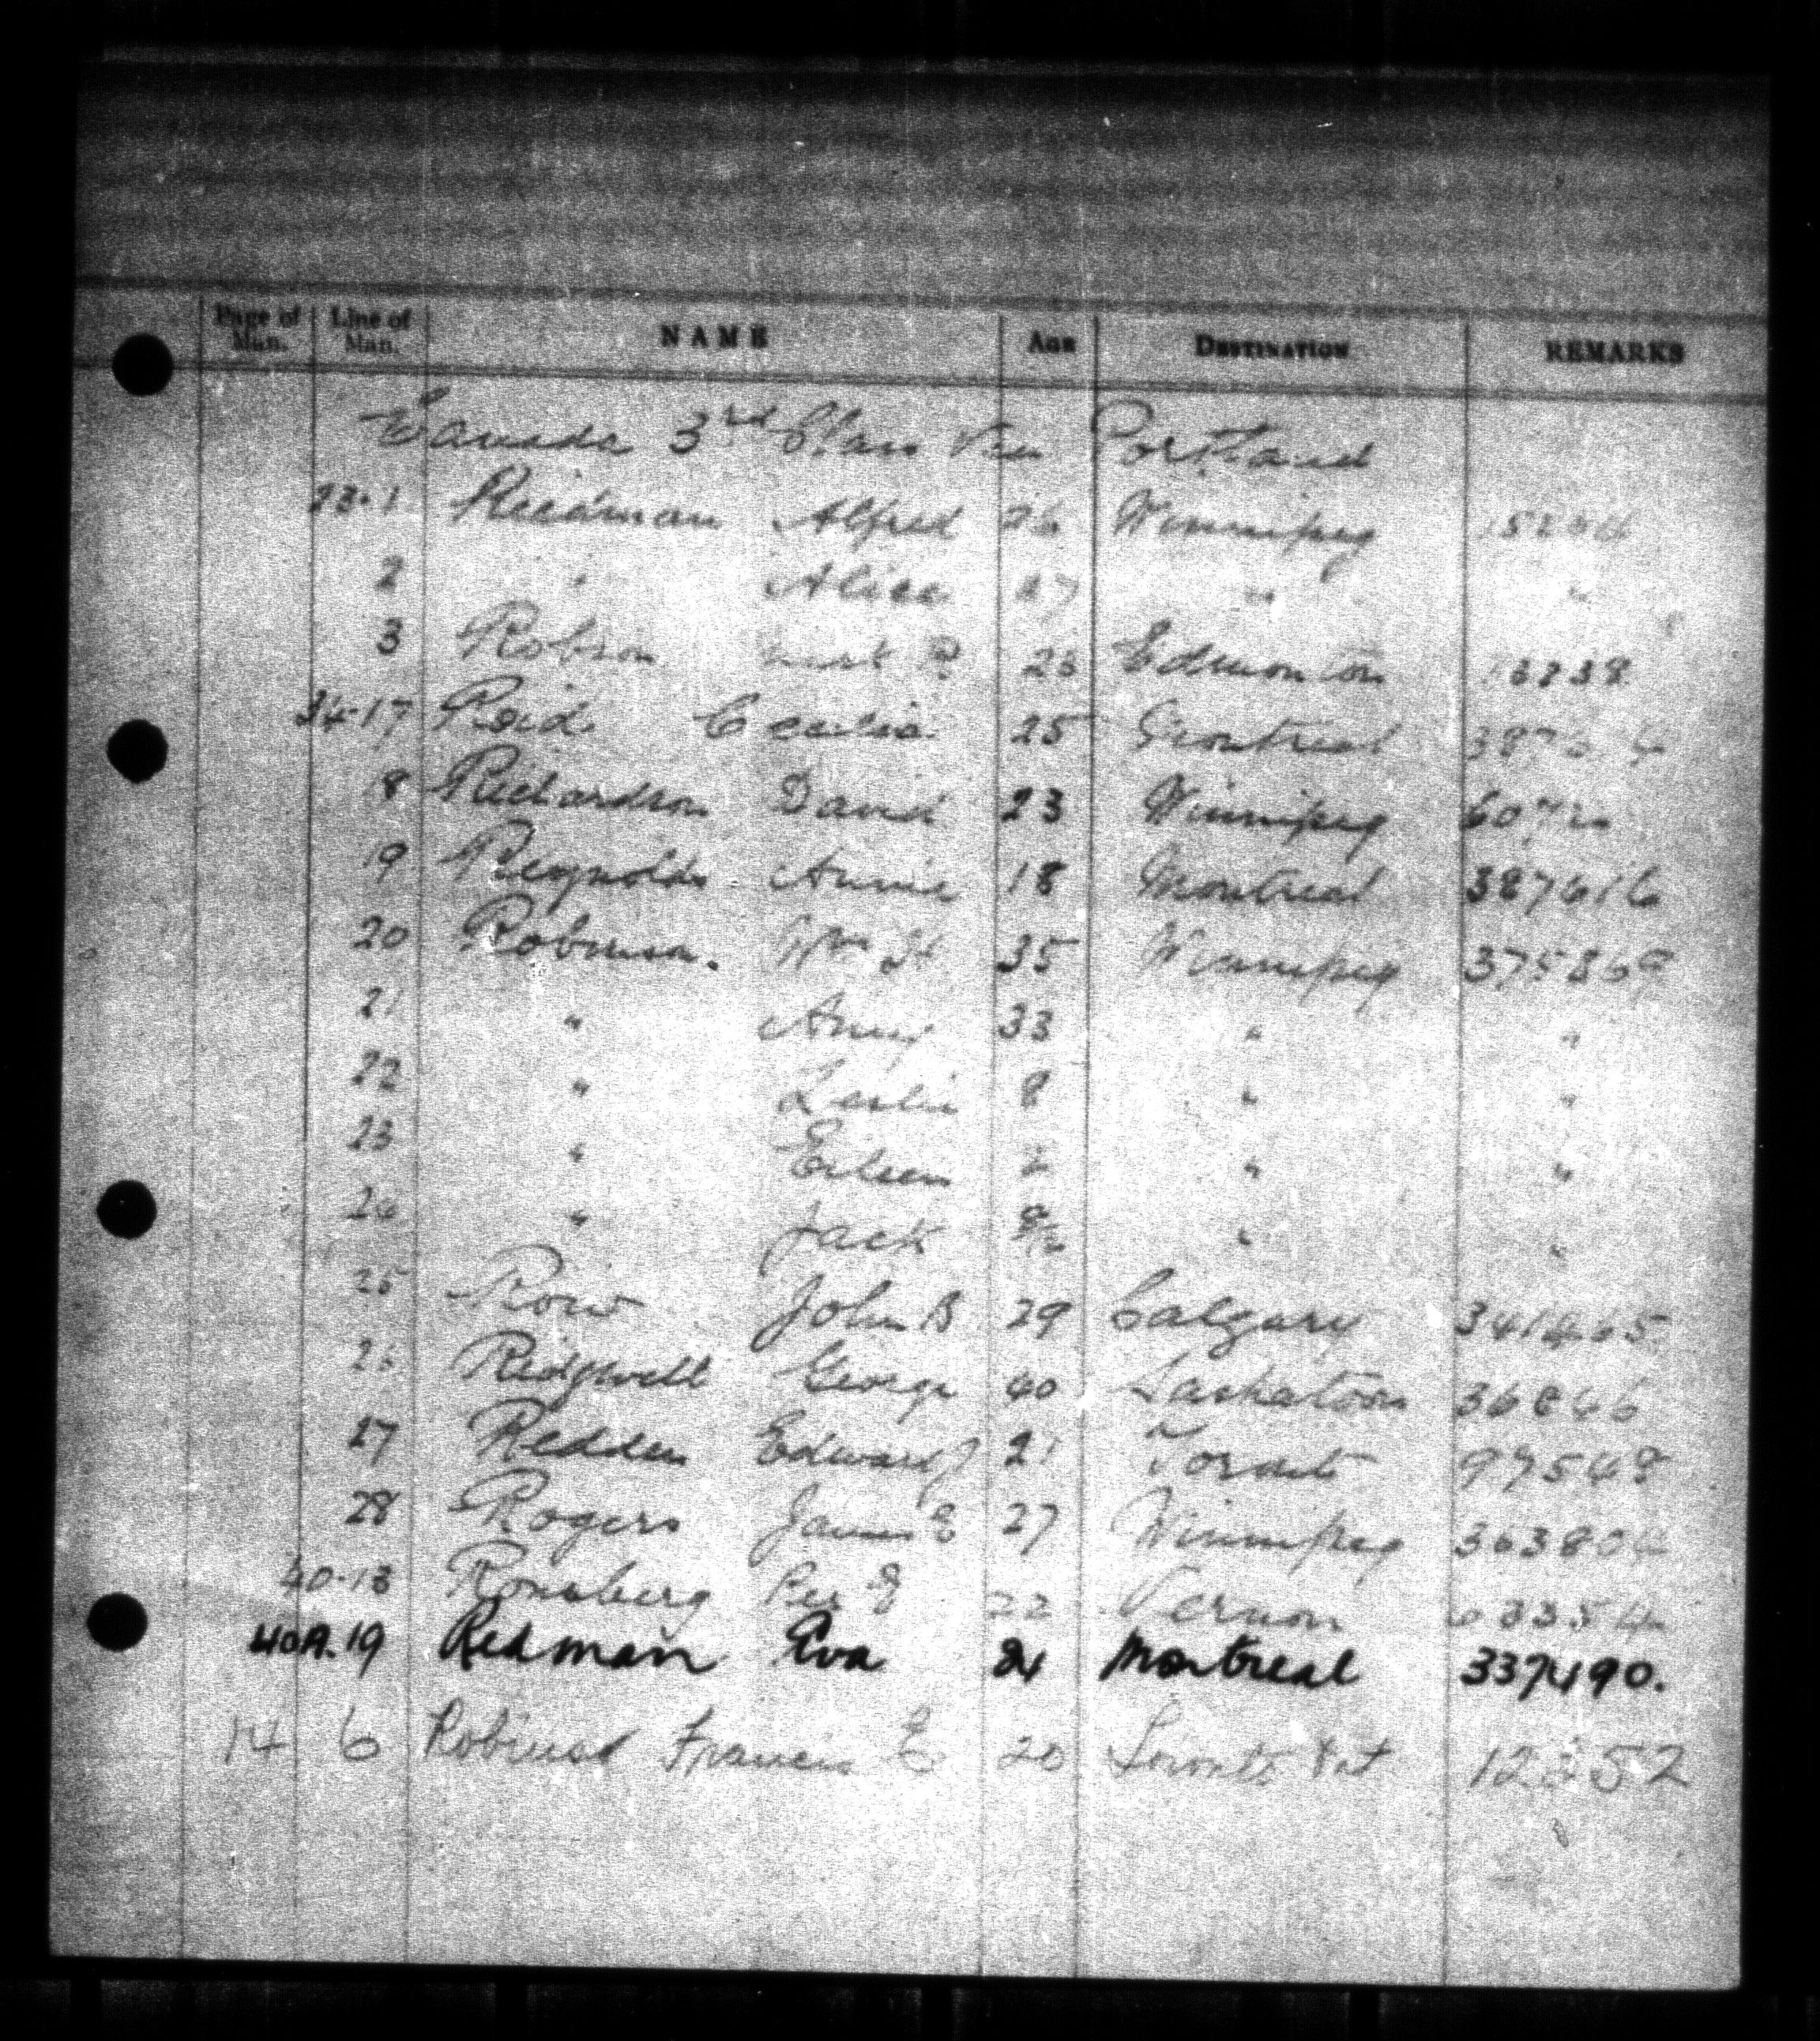 Page of Man. Line of Man. NAME AGE DESTINATION REMARKS
Canada 3rd Class Portland
23-1 Readman Alfred 26 Winnipeg
2 " Alice 27 " "
3 Robson 23 Edmonton
34-17 Reid Cecilia 25 Montreal
18 Richardson David 23 Winnipeg
19 Reynolds Annie 18 Montreal 387616
20 Robinson. Wm H 35 Winnipeg 375869
21 " Amy 33 " "
22 " Leslie 8 " "
23 " Eileen 2 " "
24 " Jack " "
25 Row John B 29 Calgary 341465
26 Ridgwell George 40 Saskatoon 36846
27 Redden Edward J 21 Toronto 97548
28 Rogers James E 27 Winnipeg 363804
40-13 Ronsberg Per E 22 Vernon
40A.19 Redman Eva 24 Montreal 337490.
14 6 Francis E 20